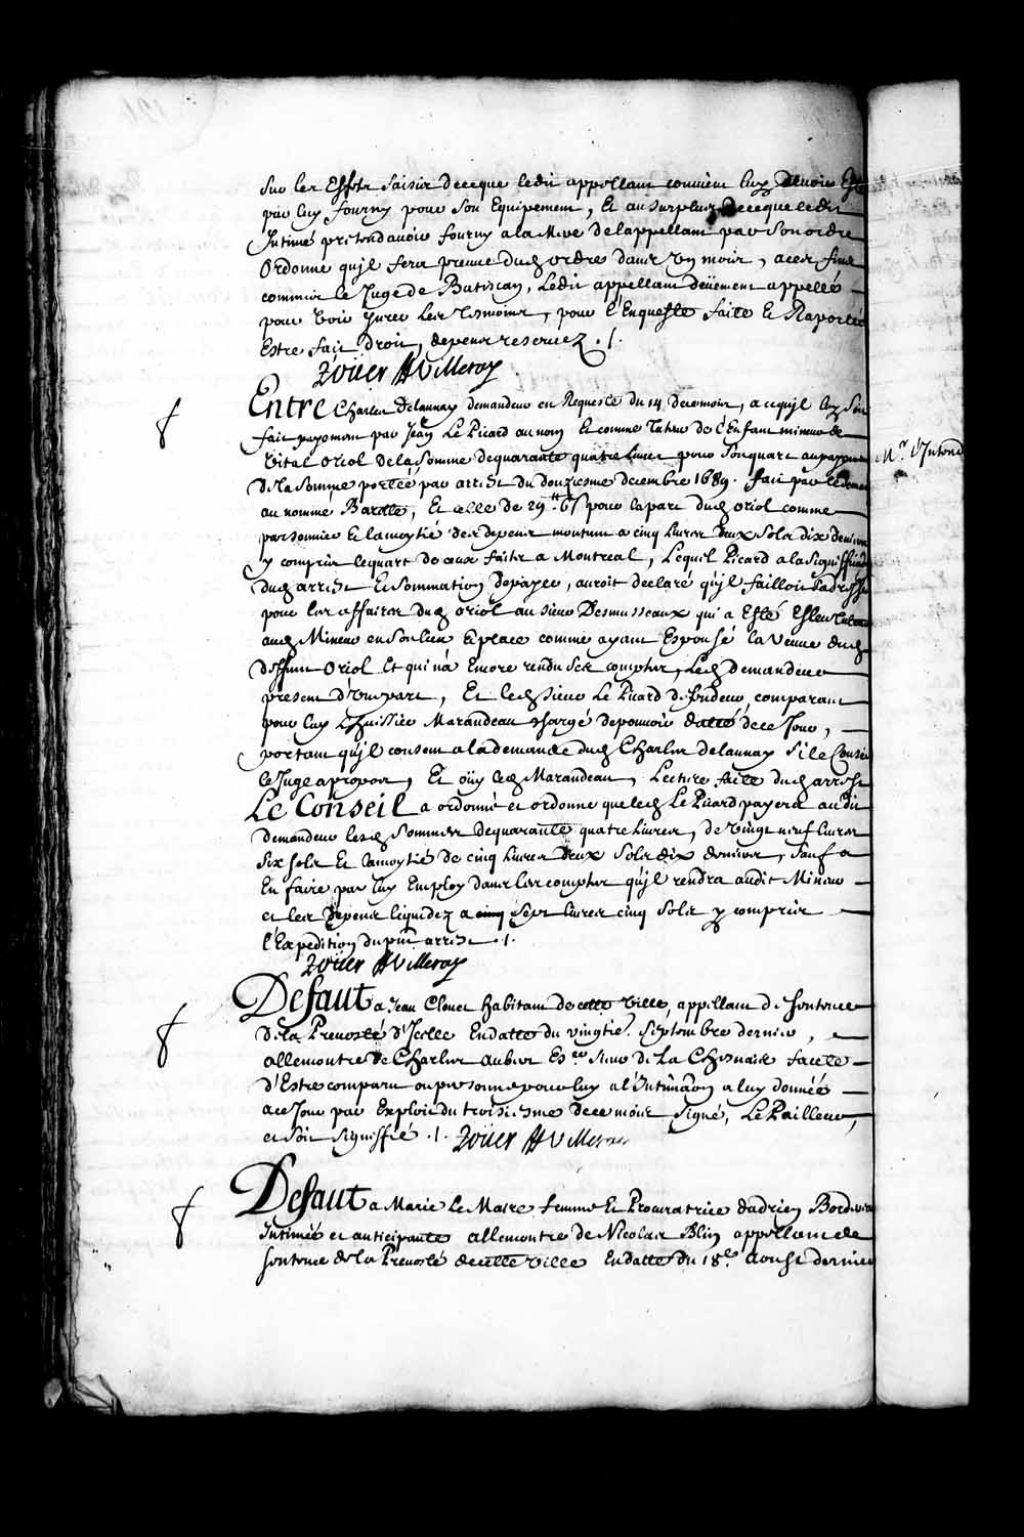 sur les Effets saisis de ce que ledit appellant convient luy devoir Est
par luy fourny pour son Equipement, Et au surplus de ce que ledit
Intimé pretend avoir fourny a la Mere de l'appellant par son ordre
Ordonne qu'jl fera preuve dud ordre dans un mois, a ces fins
commis le Juge de Batiscan, Ledit appellant deüement appellé
pour voir jurer Les tesmoins, pour l'Enqueste faite Et Raportée
Estre fait droit, depens reservez ./.
Zoüer HVilleray
Entre Charles Delaunay demandeur en Requeste du 14 decembre, a ce qu'jl luy soit
fait payement par Jean Le Picard au nom Et comme Tuteur de l'Enfant mineur de
Vital Oriol de la somme de quarante quatre livres pour son quart au payement
de la somme portée par arrest du douziesme decembre 1689. fait par le deman
au nomme Barolle, Et celle de 29.lt 6s pour la part dud Oriol comme
parsonnier Et la moytié des depens montans a cinq livres deux sols dix deniers
y compris le quart de ceux faits a Montreal, Lequel Picard a la signiffica
dud arrest Et sommation de payer, auroit declaré qu'jl failloit s'adresser
pour les affaires dud Oriol au sieur Desmusseaux qui a Esté Esleu tuteur
aud Mineur en son lieu Et place comme ayant Espousé la Veuve dud
deffunt Oriol Et qui n'a Encore rendu ses comptes, Led Demandeur
present d'Une part, Et led sieur Le Picard deffendeur, comparant
pour luy L'huissier Marandeau chargé de pouvoir datté de ce Jour,
portant qu'jl consent a la demande dud Charles delaunay si le Conseil
le Juge a propos, Et oüy led Marandeau, Lecture faite dud arrest
Le Conseil a ordonné et ordonne que led Le Picard payera audit
demandeur lesd sommes de quarante quatre Livres, de Vingt neuf livres
six sols Et la moytié de cinq Livres deux sols dix deniers, sauf a
En faire par luy Employ dans les comptes qu'jl rendra audit Mineur
et les depens liquidez a cinq sept livres cinq sols y compris
l'Expedition du pnt arrest ./.
Zoüer HVilleray
Defaut a Jean Clouet habitant de cette Ville, appellant de sentence
de la Prevosté d'Jcelle En datte du vingtie. septembre dernier,
allencontre de Charles Aubert Escer sieur de La Chesnaie faute
d'Estre comparu ou personne pour luy a l'Intimaõn a luy donnée
a ce Jour par Exploit du troisiesme de ce mois signé, Le Pailleur,
et soit signiffié ./. Zoüer HVilleray
Defaut a Marie Le Maire femme Et Procuratrice d'adrien
Intimée et anticipante allencontre de Nicolas Blin appellant de
sentence de la Prevosté de cette Ville En datte du 18e. Aoust dernier
Mr. l'Intend